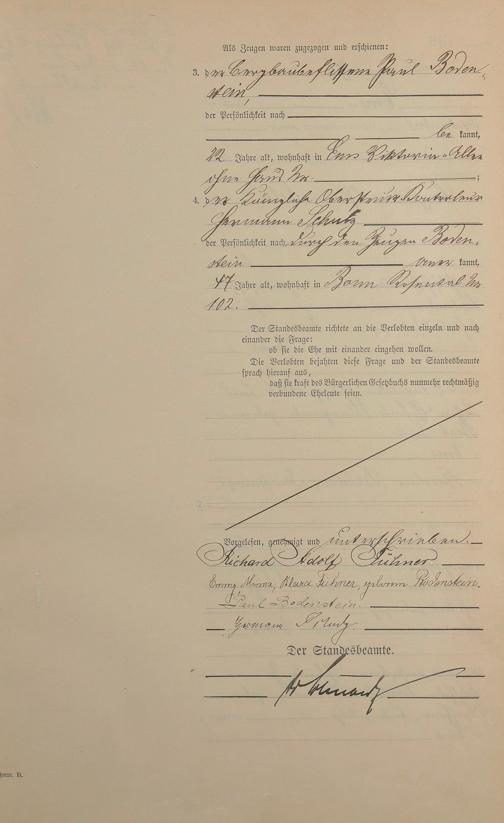 Als Zeugen waren zugezogen und erschienen:
3. der Bergbaubeflissene Paul Boden-
stein,
der Persönlichkeit nach
be kannt,
22 Jahre alt, wohnhaft in Ems Viktoria-Allee
ohne Haus No ;
4. der Königliche Obersteuer-Kontroleur
Hermann Schulz
der Persönlichkeit nach durch den Zeugen Boden-
stein aner kannt,
47 Jahre alt, wohnhaft in Bonn Rosental No
102.
Der Standesbeamte richtete an die Verlobten einzeln und nach
einander die Frage:
ob sie die Ehe mit einander eingehen wollen.
Die Verlobten bejahten diese Frage und der Standesbeamte
sprach hierauf aus,
daß sie kraft des Bürgerlichen Gesetzbuchs nunmehr rechtmäßig
verbundene Eheleute seien.
Vorgelesen, genehmigt und unterschrieben.
Richard Adolf
Emma Minna Klara geborene Bodenstein.
Paul Bodenstein.
Hermann Schulz
Der Standesbeamte.
Form. B.